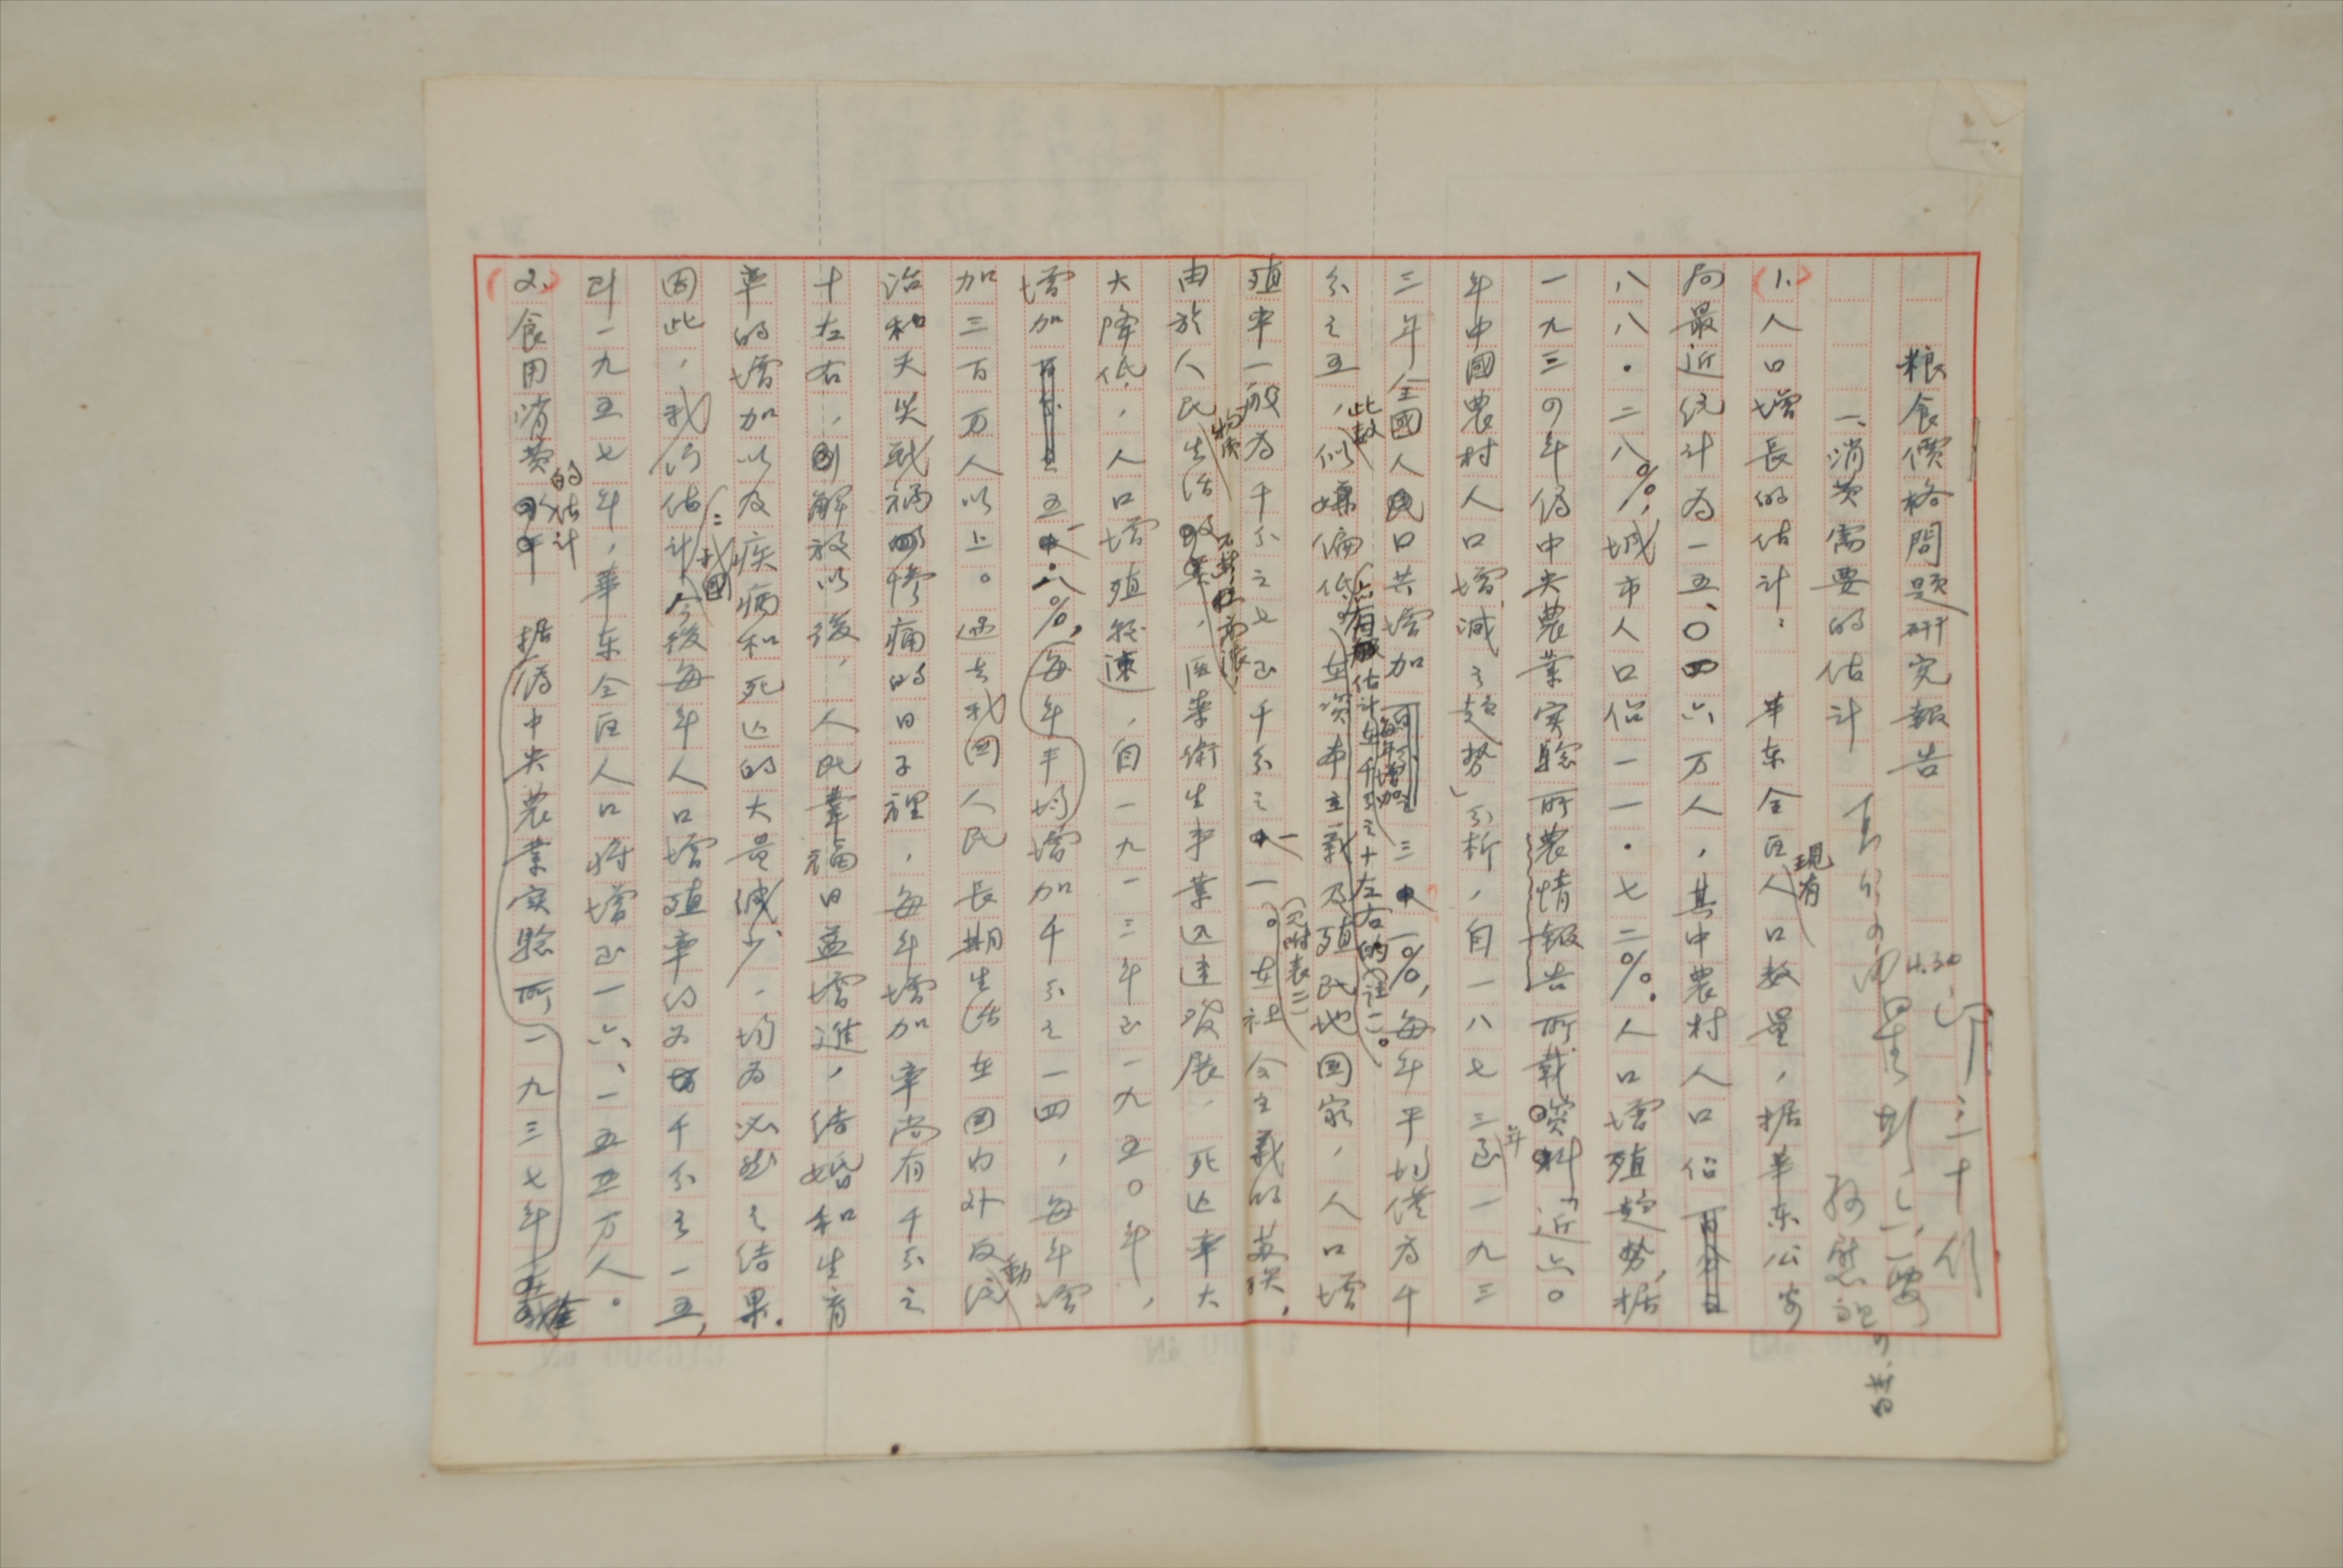 粮食價格問題研究報告
4.30 印三十份
一、消费需要的估计
1.人口增長的估计：華东全区现有人口数量，据華东公安
局最近统计为一五、〇四六万人，其中農村人口佔
八八．二八％，城市人口佔一一．七二％。人口增殖趋势，据
一九三四年偽中央農業实驗所農情報告所载资料「近六〇
年中國農村人口增减之趋势」分析，自一八七三年至一九三
三年全國人口共增加三一％，每年平均僅为千
分之五，此数似嫌偏低
估计每年增加千分之十左右的（注一）。
在资本主義及殖民地国家，人口增
殖率一般为千分之七至千分之一一。在社会主義的苏联，
（见附表二）
由於人民物质生活，医药衛生事業迅速发展，死亡率大
大降低，人口增殖很速，自一九一三年至一九五〇年，
增加五一．八％，每年平均增加千分之一四，每年增
加三百万人以上。過去我国人民長期生活在国内外反動
治和天灾戰禍惨痛的日子裡，每年增加率尚有千分之
十左右，則解放以後，人民幸福日益增進，结婚和生育
率的增加以及疾病和死亡的大量减少，均为必然之结果。
因此，我们估计我國今後每年人口增殖率约为千分之一五，
到一九五七年，華东全区人口将增至一六、一五五万人。
2.食用消费的估计 据偽中央農業实驗所一九三七年